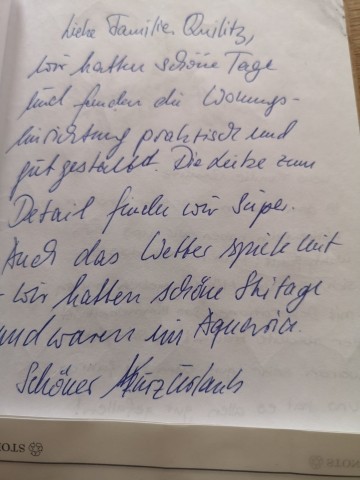 Liebe Familie Quilitz,
wir hatten schöne Tage
und finden die Wohnungs-
einrichtung praktisch und
gut gestaltet. Die Liebe zum
Detail finden wir super.
Auch das Wetter spielte mit
- wir hatten schöne Skitage
und waren im Aquaria.
Schöner Kurzurlaub